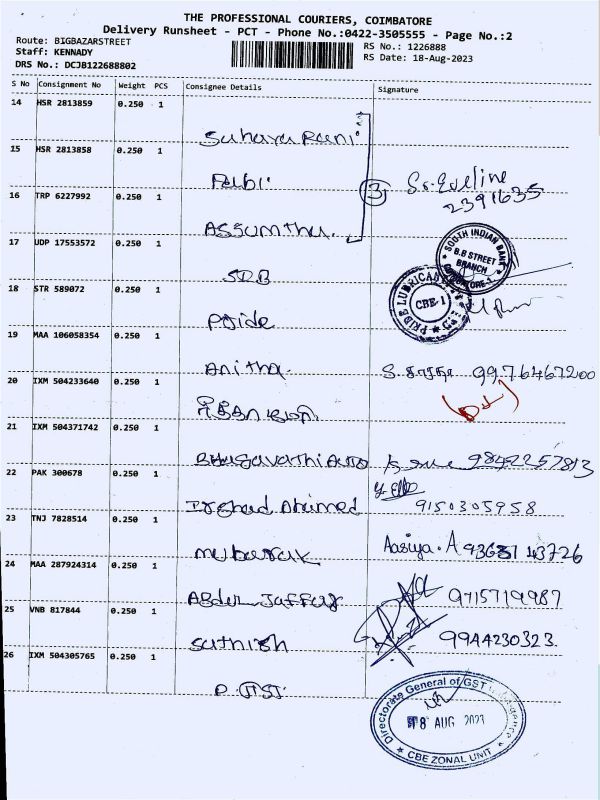 THE PROFESSIONAL COURIERS, COIMBATORE
Delivery Runsheet - PCT - Phone No.:0422-3505555 - Page No.:2
Route: BIGBAZARSTREET
RS No.: 1226888
Staff: KENNADY
RS Date: 18-Aug-2023
DRS No.: DCJB122688802
S No Consignment No Weight PCS Consignee Details Signature
14 HSR 2813859 0.250 1
Sahaya Rani
15 HSR 2813858 0.250 1
Albi 3 Sr. Eveline
2391635
16 TRP 6227992 0.250 1
Assumtha.
17 UDP 17553572 0.250 1
SOUTH INDIAN BANK
B.B STREET
BRANCH
SIB
18 STR 589072 0.250 1
PRIDE LUBRICANTS
CBE-1
Pride
19 MAA 106058354 0.250 1
Anitha. 9976467200
20 IXM 504233640 0.250 1
21 IXM 504371742 0.250 1
Bhagavathi Auto 9842257813
22 PAK 300678 0.250 1
Irshad Ahamed 9150305958
23 TNJ 7828514 0.250 1
Mubarak Aasiya. A 43726
24 MAA 287924314 0.250 1
Abdul Jaffar 9715719987
25 VNB 817844 0.250 1
Sathish 9944230323.
26 IXM 504305765 0.250 1
D. GST
Directorate General of GST Intelligence
18 AUG 2023
CBE ZONAL UNIT